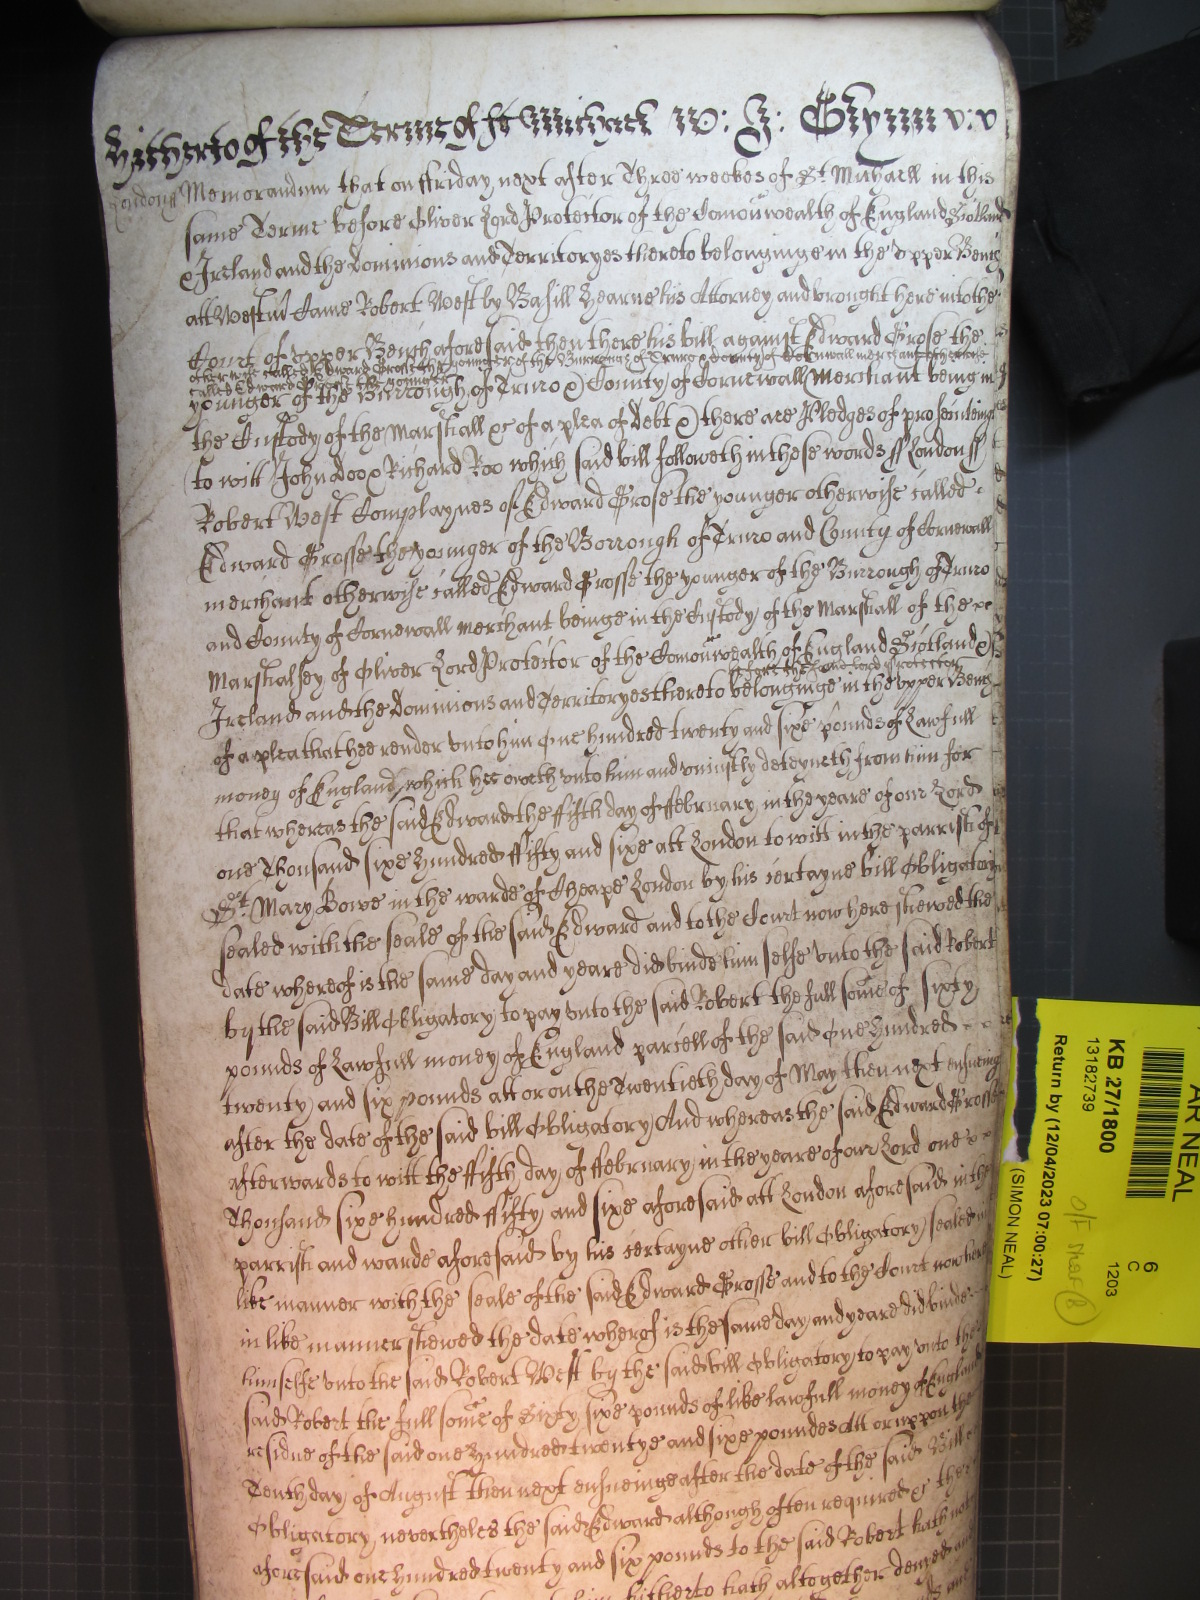 Hitherto of the Terme of St Michael W: J: Glynn v: v
London ss Memorandum that on ffriday next after Three weekes of St Michaell in this
same Terme before Oliver Lord Protector of the Comonwealth of England Scotland
& Ireland and the Dominions and Territoryes thereto belonginge in the Upper Bench
att Westm Came Robert West by Basill Hearne his Attorney and brought here into the
Court of Upper Bench aforesaid then there his bill against Edward Grose the
otherwise called Edward Grosse the younger of the Burroug of Truro & County of Cornwall merchant otherwise
called Edward Grosse the younger
younger of the Burrough of Truro & County of Cornewall Merchant being in
the Custody of the Marshall &c of a plea of Debt & there are Pledges of prosecuteing
to witt John Doo & Richard Roo which said bill followeth in these words ss London ss
Robert West Complaynes of Edward Grose the younger otherwise called
Edward Grosse the younger of the Borrough of Truro and County of Cornewall
merchant otherwise called Edward Grosse the younger of the Burrough of Truro
and County of Cornewall merchant beinge in the Custody of the Marshall of the
Marshalsey of Oliver Lord Protector of the Comonwealth of England Scotland &
before the said lord protector
Ireland and the Dominions and Territoryes thereto belonginge in the upper Bench
of a plea that hee render unto him One hundred twenty and sixe pounds of Lawfull
money of England which hee oweth unto him and uniustly deteyneth from him for
that whereas the said Edward the ffifth day of ffebruary in the yeare of our Lord
one Thousand sixe Hundred ffifty and sixe att London to witt in the parrish of
St Mary Bowe in the warde of Cheape London by his certayne bill Obligatory
sealed with the seale of the said Edward and to the Court now here shewed the
date whereof is the same day and yeare did binde him selfe unto the said Robert
by the said Bill Obligatory to pay unto the said Robert the full some of sixty
pounds of Lawfull money of England parcell of the said One Hundred
twenty and six pounds att or on the Twentieth day of May then next ensueing
after the date of the said bill Obligatory And whereas the said Edward Grosse
afterwards to witt the ffifth day of ffebruary in the yeare of our Lord one
Thousand sixe hundred ffifty and sixe aforesaid att London aforesaid in the
parrish and warde aforesaid by his certayne other bill Obligatory sealed in
like manner with the seale of the said Edward Grosse and to the Court now here
in like manner shewed the date wherof is the same day and yeare did binde
himselfe unto the said Robert West by the said bill Obligatory to pay unto the
said Robert the full some of Sixty sixe pounds of like lawfull money of England
residue of the said one Hundred twentye and sixe poundes att or uppon the
Tenth day of August then next ensueinge after the date of the said Bill
Obligatory nevertheles the said Edward although often required &c the
aforesaid one hundred twenty and six pounds to the said Robert hath not
hitherto hath altogether denyed and
AR NEAL
6
C
KB 27/1800 1203
13182739
O/F Shelf (8)
Return by (12/04/2023 07:00:27)
(SIMON NEAL)